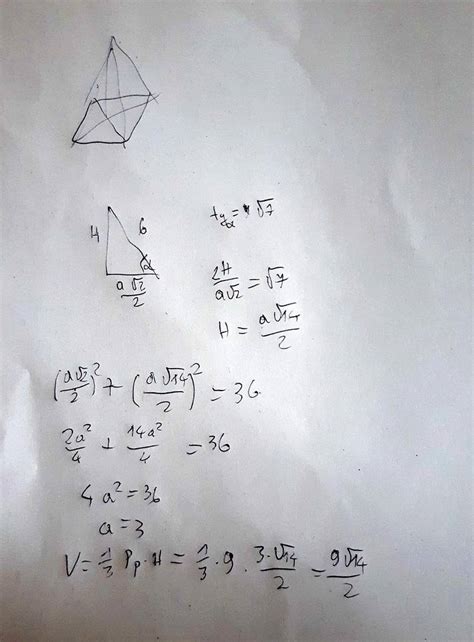 tgα = √7
H 6
α
a√2/2
2H/a√2 = √7
H = a√14/2
(a√2/2)² + (a√14/2)² = 36
2a²/4 + 14a²/4 = 36
4a² = 36
a = 3
V = 1/3 Pp · H = 1/3 · 9 · 3·√14/2 = 9√14/2